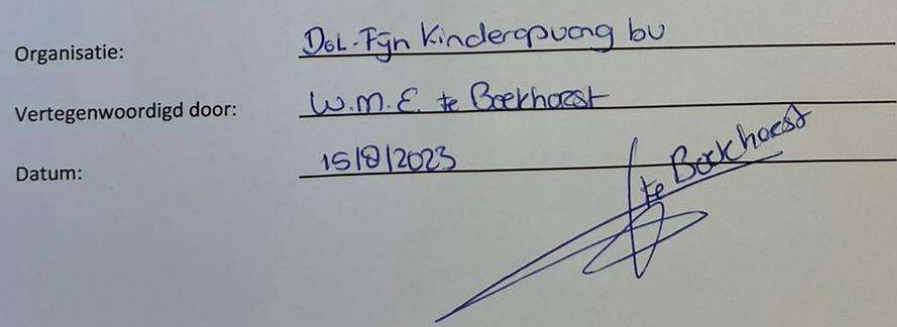 Organisatie: Dol-Fijn Kinderopvang bv
Vertegenwoordigd door: W.M.E. te Boekhorst
Datum: 15/8/2023
te Boekhorst